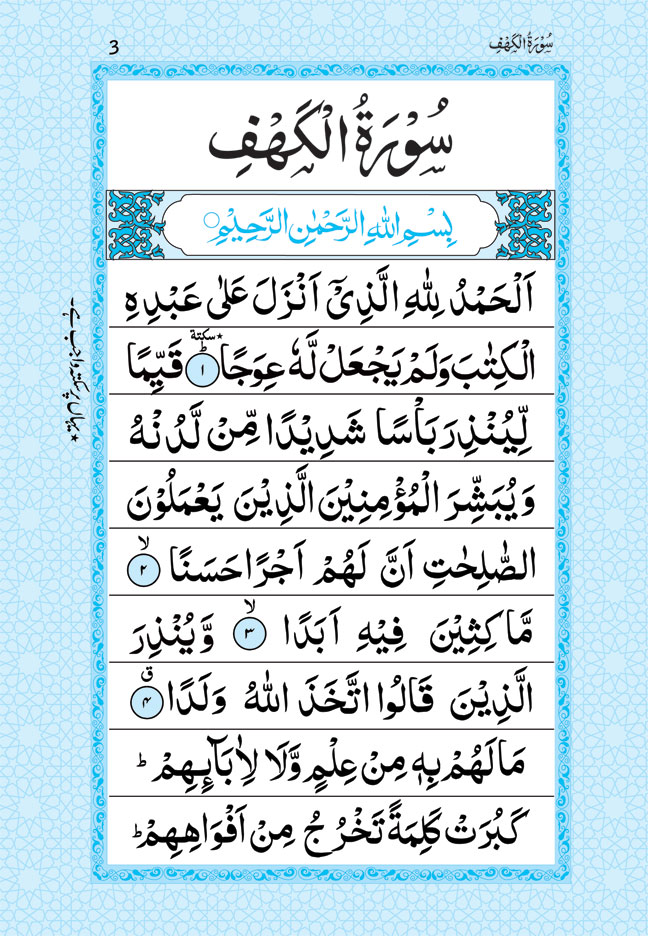 سُوْرَةُ الْكَهْفِ
3
سُوْرَةُ الْكَهْفِ
بِسْمِ اللّٰهِ الرَّحْمٰنِ الرَّحِيْمِ ○
اَلْحَمْدُ لِلّٰهِ الَّذِيْۤ اَنْزَلَ عَلٰى عَبْدِهِ
الْكِتٰبَ وَلَمْ يَجْعَلْ لَّهٗ عِوَجًا ؕ *سكتة ١ قَيِّمًا
لِّيُنْذِرَ بَاْسًا شَدِيْدًا مِّنْ لَّدُنْهُ
وَيُبَشِّرَ الْمُؤْمِنِيْنَ الَّذِيْنَ يَعْمَلُوْنَ
الصّٰلِحٰتِ اَنَّ لَهُمْ اَجْرًا حَسَنًا ۙ ۲
مَّاكِثِيْنَ فِيْهِ اَبَدًا ۙ ۳ وَّيُنْذِرَ
الَّذِيْنَ قَالُوا اتَّخَذَ اللّٰهُ وَلَدًا ق ۴
مَا لَهُمْ بِهٖ مِنْ عِلْمٍ وَّلَا لِاٰبَآىِٕهِمْ ؕ
كَبُرَتْ كَلِمَةً تَخْرُجُ مِنْ اَفْوَاهِهِمْ ؕ
*یہاں پر سکتہ واجب ہے۔